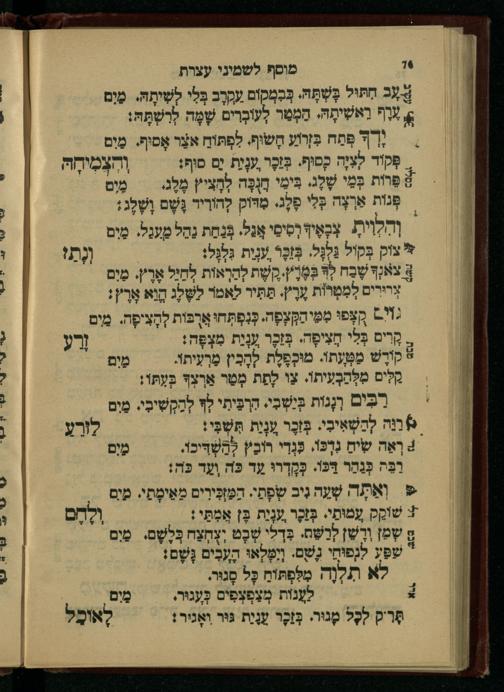 76
מוסף לשמיני עצרת
עָב חִתּוּל בָּשְׁתָּהּ. כְּבִמְקוֹם עַקְרָב בְּלִי לְשִׁיתָהּ. מַיִם
עֲרֹף רֵאשִׁיתָהּ. הַמְטֵר לְעוֹבְרִים שָׁמָּה לְרִשְׁתָּהּ:
יָדְךָ פְּתַח בִּזְרוֹעַ חָשׂוּף. לִפְתּוֹחַ אֹצָר אָסוּף. מַיִם
פְּקוֹד לְצִיָּה כָסוּף. בְּזֵכֶר עֲנִיַת יַם סוּף: וְהִצְמִיחָהּ
פֵּרוֹת בְּמֵי שֶׁלֶג. בִּימֵי חֲנֻכָּה לְהָצִיץ מֶלֶג. מַיִם
פְּנוֹת אַרְצָה בְּלִי פֶלֶג. מִדּוֹק לְהוֹרִיד גֶּשֶׁם וָשֶׁלֶג:
וְהִלְוִיתָ צְבָאֶיךָ רְסִיסֵי אֵגֶל. בְּנַחַת נַהֵל מַעְגַּל. מַיִם
צוֹק בְּקוֹל גַּלְגַּל. בְּזֵכֶר עֲנִיַת גִּלְגָּל: וְנָתַן
צֹאנְךָ שַׁבַּח לְךָ קֶשֶׁת לְהַרְאוֹת לְחַיֵּל אָרֶץ. מַיִם
צְרוּרִים לְמִטְרוֹת עֶרֶץ. תַּתִּיר לֵאמֹר לַשֶּׁלֶג הֱוֵא אָרֶץ:
קֻצְּפוּ מִמֵּי כְּנִפְתְּחוּ אֲרֻבּוֹת לְהָצִיפָה. מַיִם
קָרִים בְּלִי חֲצִיפָה. בְּזֵכֶר עֲנִיַת מִצְפָּה: זֶרַע
קוֹדֶשׁ מַטַּעְתּוֹ. מוּכְפֶּלֶת לְהָכִין מַרְעִיתוֹ. מַיִם
קַלִּים מִלְּהַבְעִיתוֹ. צַו לָתֵת מְטַר אַרְצְךָ בְּעִתּוֹ:
רַבִּים רְנָנוֹת בְּיִשְׁבִי. הִרְבֵּיתִי לְךָ לְהַקְשִׁיבִי. מַיִם
רַוֵּה לְהַשְׁאִיבִי. בְּזֵכֶר עֲנִיַת תִּשְׁבִּי: לַזֹּרֵעַ
רְאֵה שִׂיחַ נִדְכּוֹ. כְּנֶגְדִי רוֹבֵץ לְהַשְׁדִּיכוֹ. מַיִם
רְבֵּה כְּנָהָר דִּכּוֹ. כְּקָדְרוּ עַד כֹּה וְעַד כֹּה:
וְאַתָּה שְׁעֵה נִיב שְׂפָתַי. הַמַּזְכִּירִים מֵאֵימָתַי. מַיִם
שׁוֹקֵק עֲמִּתִּי. בְּזֵכֶר עֲנִיַת בֶּן אֲמִתַּי: וְלֶחֶם
שָׁמֵן וְדָשֵׁן לְרַשֵּׁם. בִּדְלִי שְׁבָט יְצֻחְצַח כְּלֶשֶׁם. מַיִם
שִׁפְּעַ לְנִפּוּחֵי נָשֶׁם. וְיִמָּלְאוּ הֶעָבִים גֶּשֶׁם:
לֹא תִלְוֶה מִלִּפְתּוֹחַ כָּל סָגוּר.
לַעֲנוֹת מְצַפְצְפִים כְּעָגוּר. מַיִם
לְכָל מָגוּר. בְּזֵכֶר עֲנִיַת גּוּר וְאָגוּר: לָאוֹכֵל